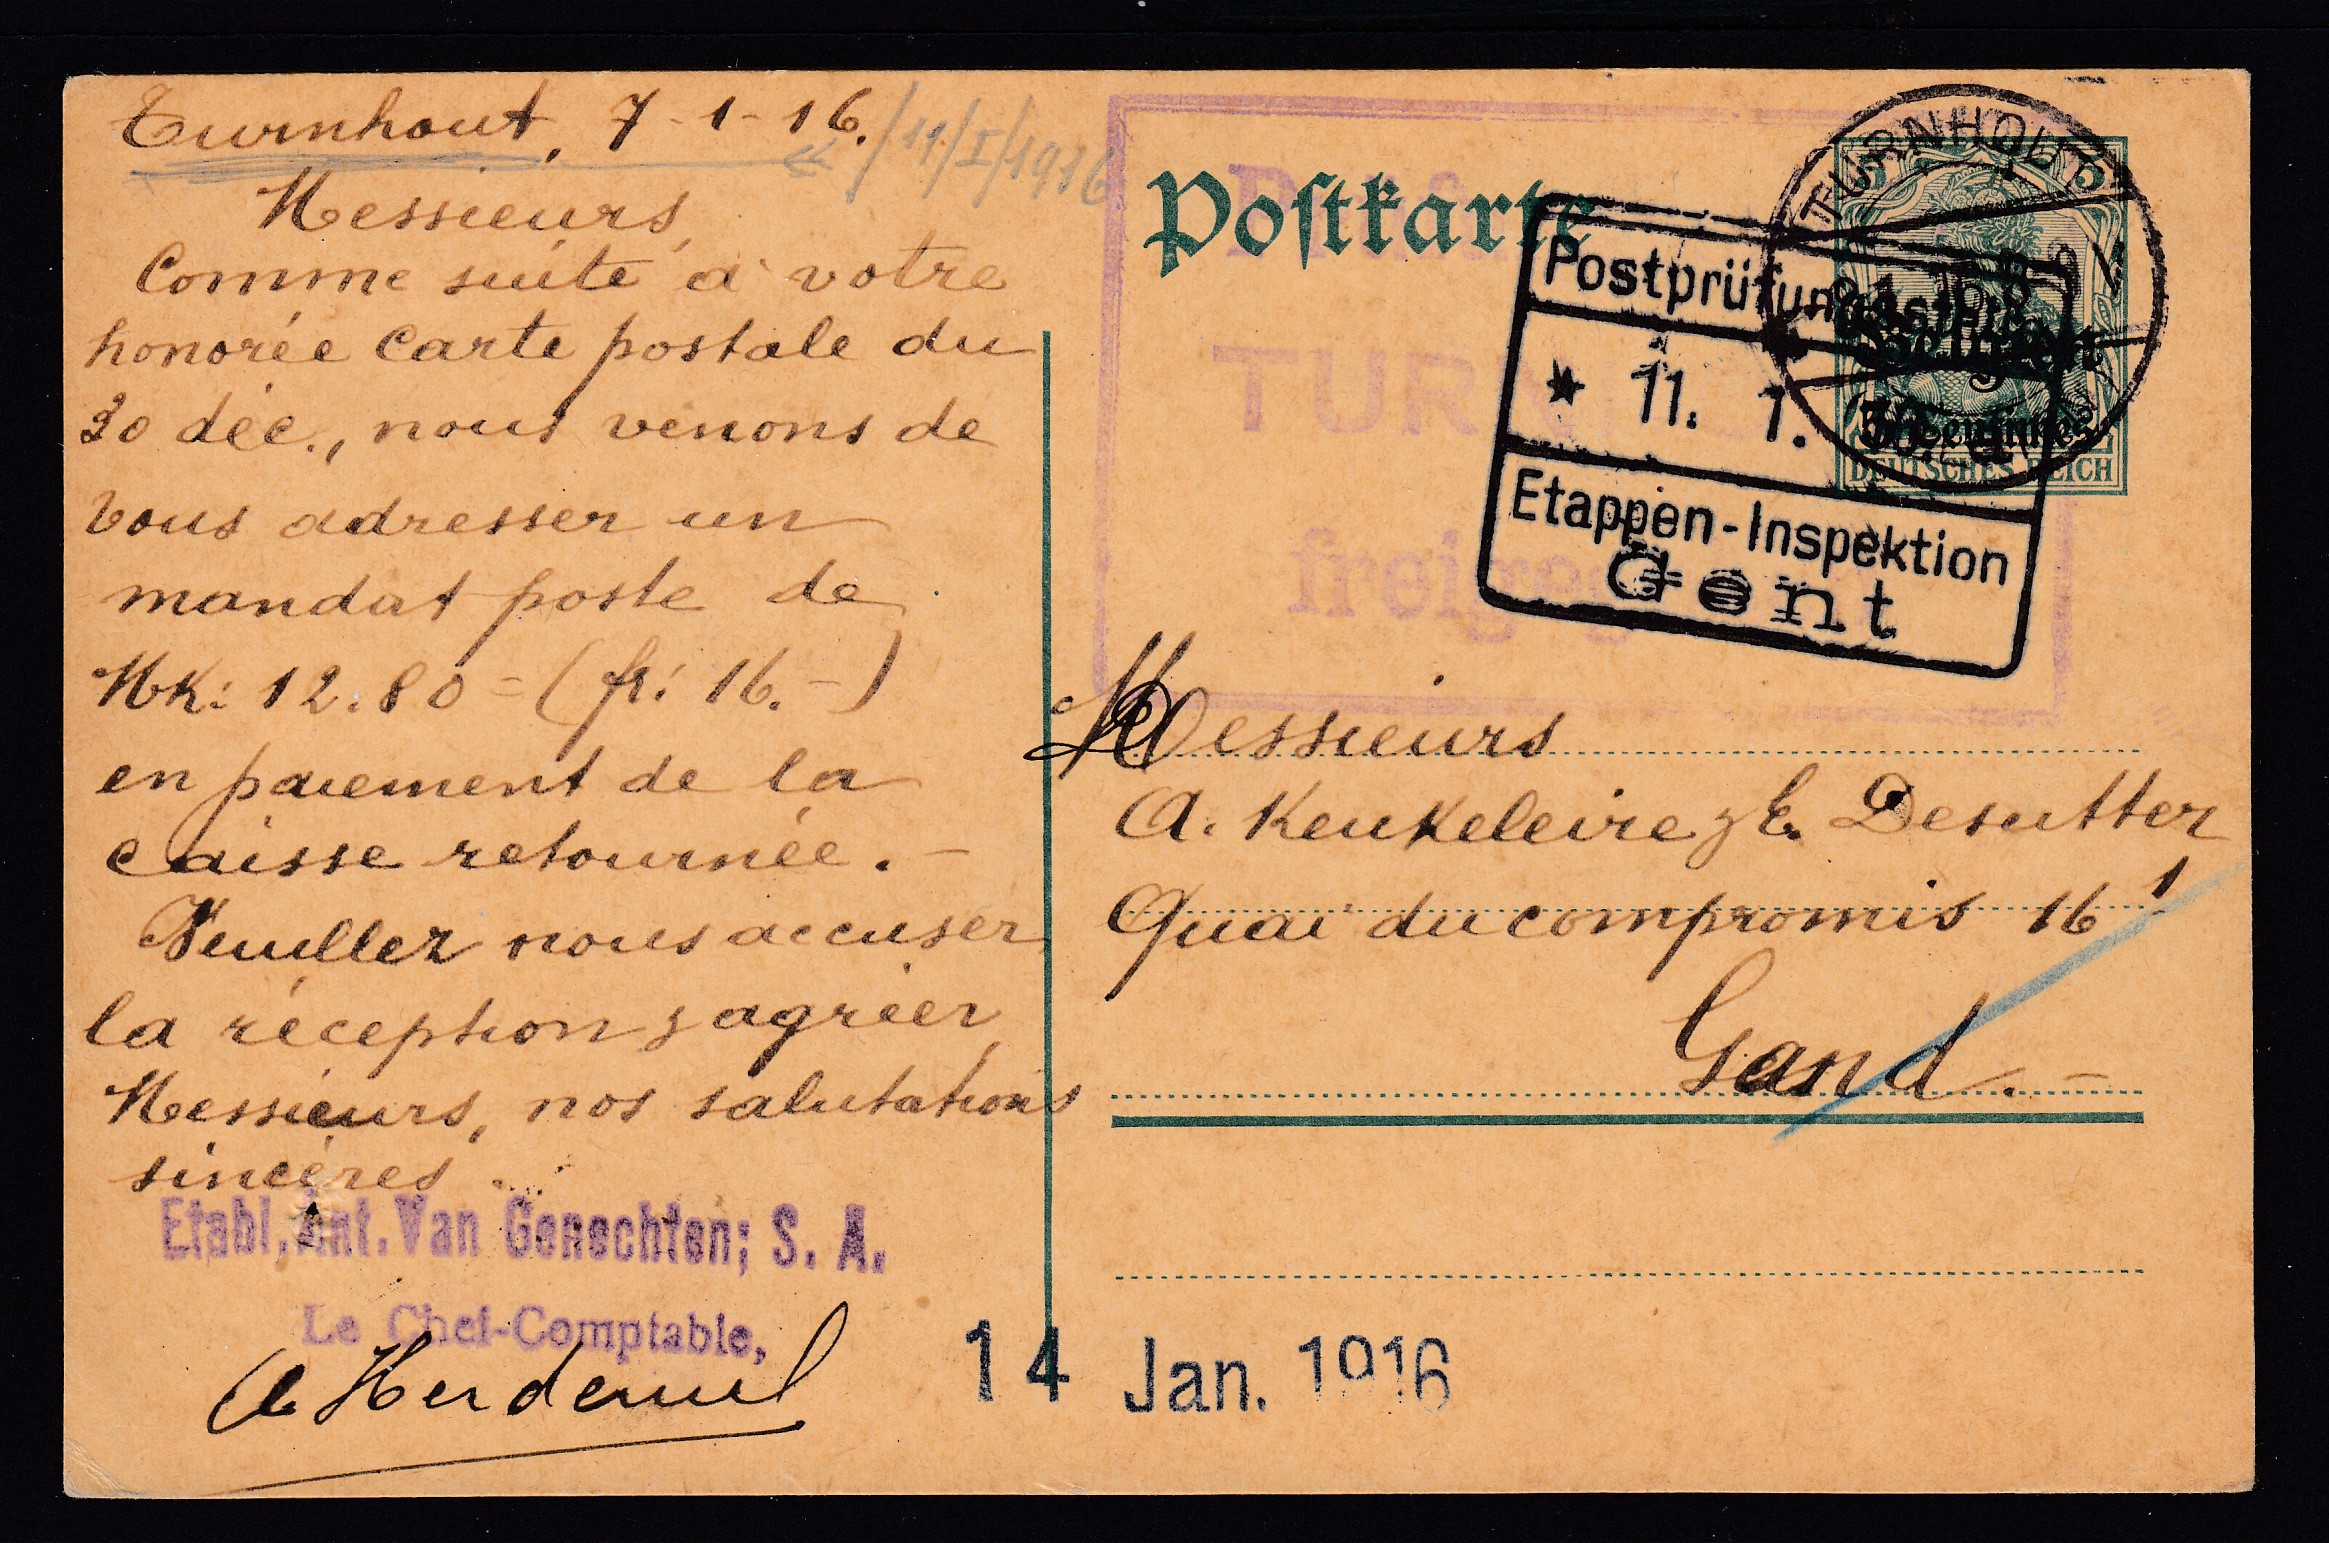 Turnhout, 7-1-16. /11/I/1916
Messieurs,
Comme suite à votre
honorée Carte postale du
30 déc., nous venons de
vous adresser un
mandat poste de
Mk: 12.80 = (fr: 16.-)
en paiement de la
caisse retournée. -
Veuillez nous accuser
la réception & agréer,
Messieurs, nos salutations
sincères.
Etabl. Ant. Van Genechten; S. A.
Le Chef-Comptable,
14 Jan. 1916
Postkarte
TURNHOUT
Belgien
5 Centimes
DEUTSCHES REICH
Postprüfungsstelle
* 11. 1.
Etappen-Inspektion
Gent
TUR
freigeg
Messieurs
A. Keukeleire & E. Desutter
Quai du compromis 16
Gand. -